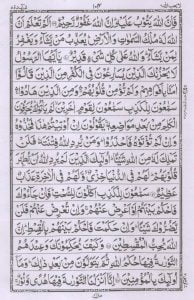 ١٠٤
فَاِنَّ اللّٰهَ يَتُوْبُ عَلَيْهِ ؕ اِنَّ اللّٰهَ غَفُوْرٌ رَّحِيْمٌ اَلَمْ تَعْلَمْ اَنَّ
اللّٰهَ لَهٗ مُلْكُ السَّمٰوٰتِ وَالْاَرْضِ يُعَذِّبُ مَنْ يَّشَآءُ وَيَغْفِرُ
لِمَنْ يَّشَآءُ ؕ وَاللّٰهُ عَلٰى كُلِّ شَيْءٍ قَدِيْرٌ يٰٓاَيُّهَا الرَّسُوْلُ
لَا يَحْزُنْكَ الَّذِيْنَ يُسَارِعُوْنَ فِي الْكُفْرِ مِنَ الَّذِيْنَ قَالُوْٓا
اٰمَنَّا بِاَفْوَاهِهِمْ وَلَمْ تُؤْمِنْ قُلُوْبُهُمْ وَمِنَ الَّذِيْنَ هَادُوْا
سَمّٰعُوْنَ لِلْكَذِبِ سَمّٰعُوْنَ لِقَوْمٍ اٰخَرِيْنَ لَمْ يَاْتُوْكَ يُحَرِّفُوْنَ
الْكَلِمَ مِنْۢ بَعْدِ مَوَاضِعِهٖ يَقُوْلُوْنَ اِنْ اُوْتِيْتُمْ هٰذَا فَخُذُوْهُ
وَاِنْ لَّمْ تُؤْتَوْهُ فَاحْذَرُوْا وَمَنْ يُّرِدِ اللّٰهُ فِتْنَتَهٗ فَلَنْ
تَمْلِكَ لَهٗ مِنَ اللّٰهِ شَيْئًا اُولٰٓئِكَ الَّذِيْنَ لَمْ يُرِدِ اللّٰهُ اَنْ
يُّطَهِّرَ قُلُوْبَهُمْ لَهُمْ فِي الدُّنْيَا خِزْيٌ وَّلَهُمْ فِي الْاٰخِرَةِ عَذَابٌ
عَظِيْمٌ سَمّٰعُوْنَ لِلْكَذِبِ اَكّٰلُوْنَ لِلسُّحْتِ فَاِنْ جَآءُوْكَ
فَاحْكُمْ بَيْنَهُمْ اَوْ اَعْرِضْ عَنْهُمْ وَاِنْ تُعْرِضْ عَنْهُمْ فَلَنْ
يَّضُرُّوْكَ شَيْئًا وَاِنْ حَكَمْتَ فَاحْكُمْ بَيْنَهُمْ بِالْقِسْطِ اِنَّ
اللّٰهَ يُحِبُّ الْمُقْسِطِيْنَ وَكَيْفَ يُحَكِّمُوْنَكَ وَعِنْدَهُمُ
التَّوْرٰىةُ فِيْهَا حُكْمُ اللّٰهِ ثُمَّ يَتَوَلَّوْنَ مِنْۢ بَعْدِ ذٰلِكَ وَمَآ
اُولٰٓئِكَ بِالْمُؤْمِنِيْنَ اِنَّآ اَنْزَلْنَا التَّوْرٰىةَ فِيْهَا هُدًى وَّنُوْرٌ